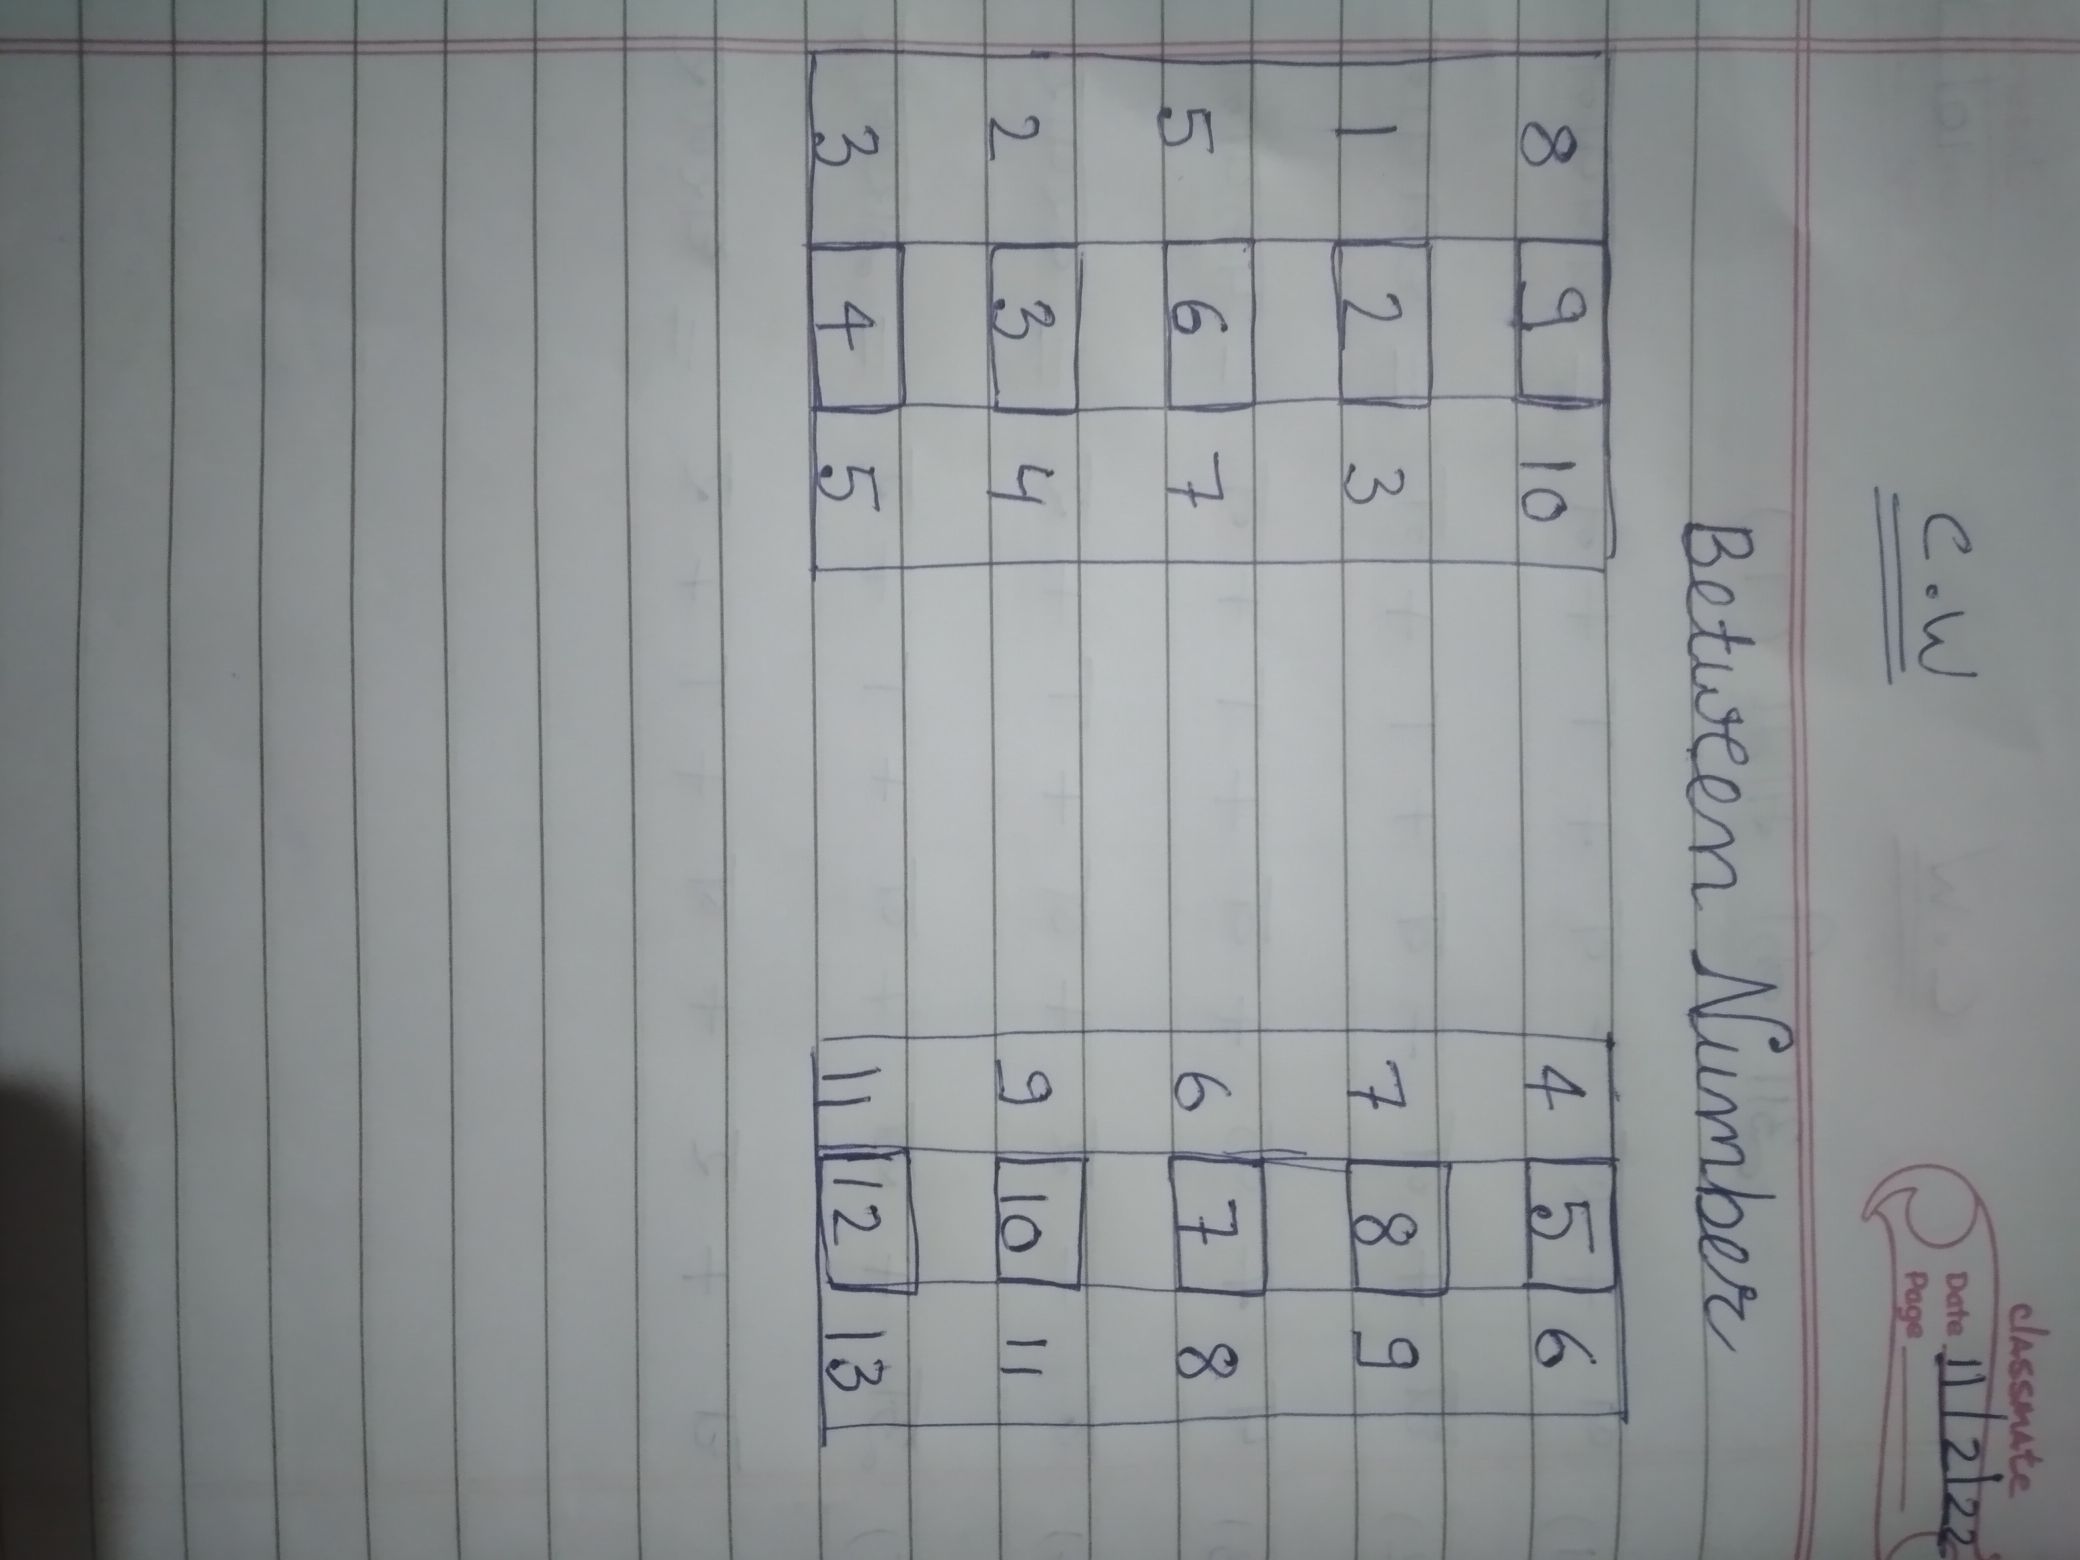 classmate
Date 11/2/22
Page
C.W
Between Number
8 9 10 4 5 6
1 2 3 7 8 9
5 6 7 6 7 8
2 3 4 9 10 11
3 4 5 11 12 13